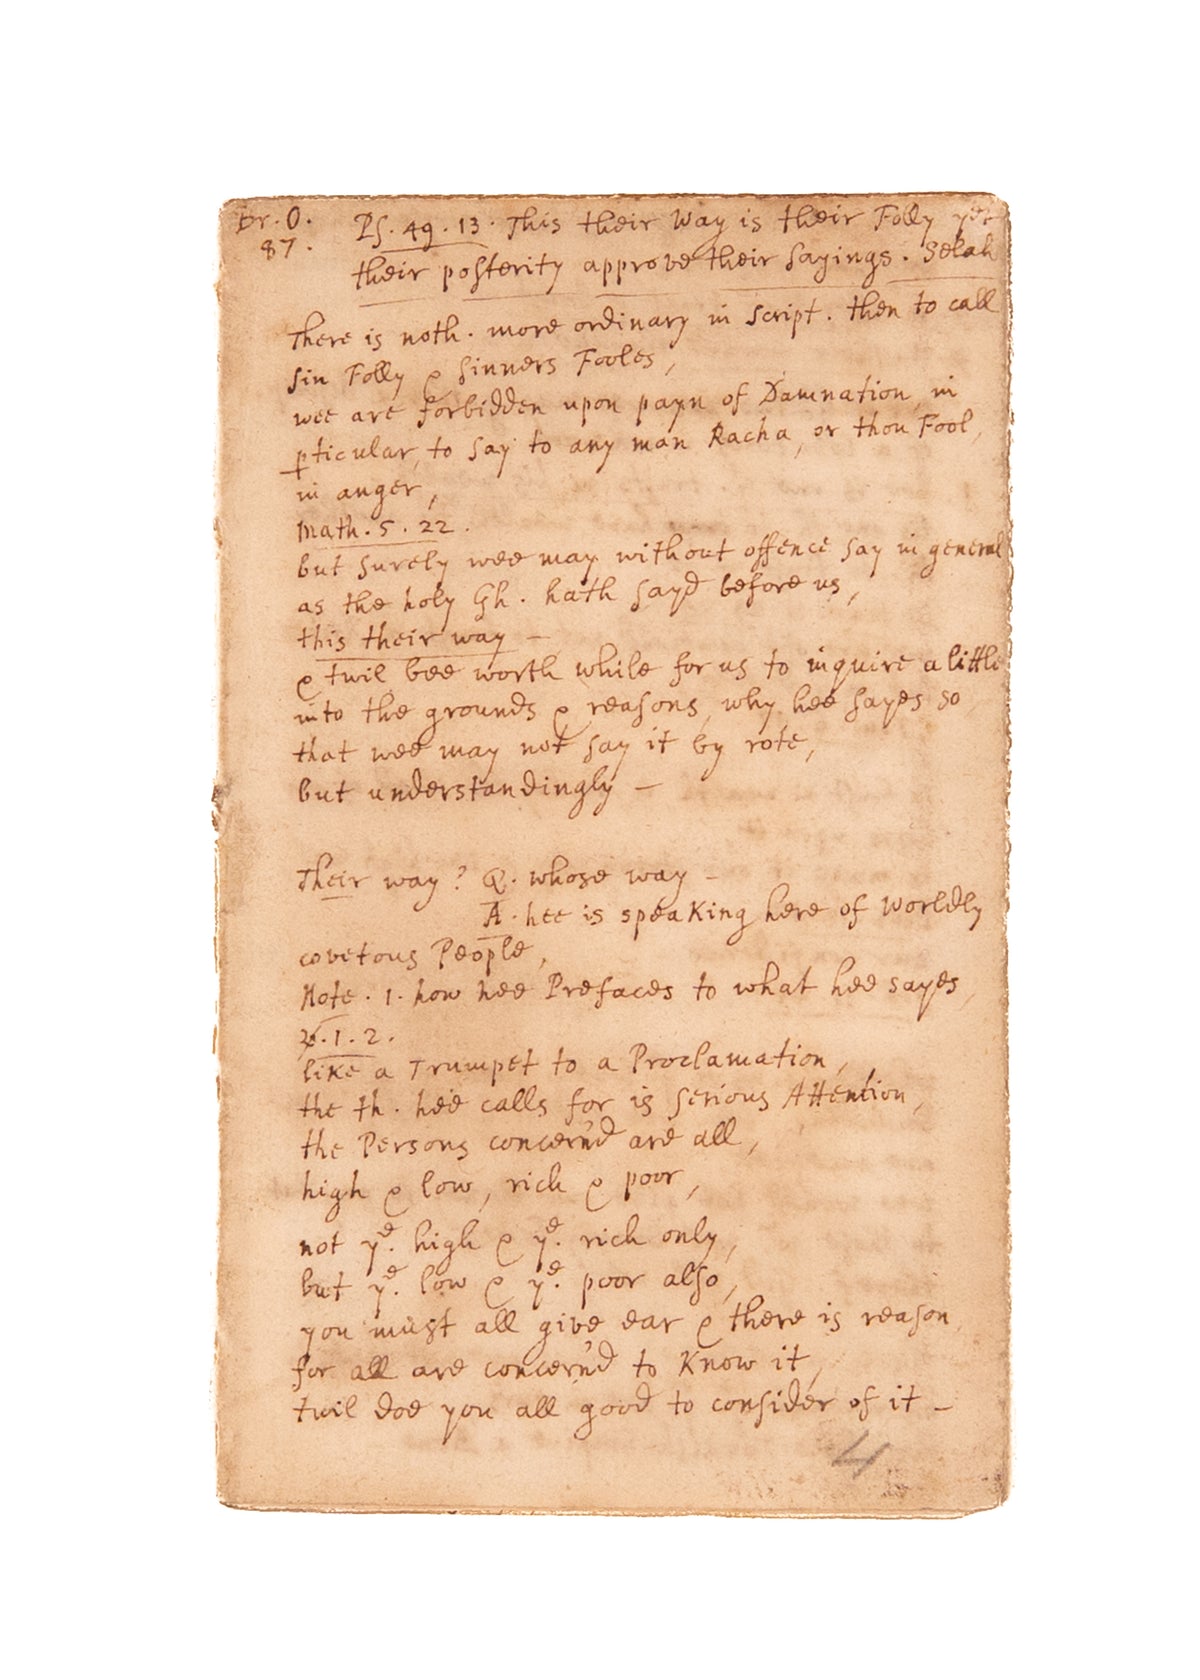 Br. O. Ps. 49. 13. This their Way is their Folly yet
87. their posterity approve their sayings. Selah
There is noth. more ordinary in Script. then to call
sin Folly & sinners Fooles,
wee are forbidden upon payn of Damnation, in
pticular, to say to any man Racha, or thou Fool,
in anger,
Math. 5. 22.
but surely wee may without offence say in general
as the holy Gh. hath sayd before us,
this their way –
& twil bee worth while for us to inquire a little
into the grounds & reasons, why hee sayes so,
that wee may not say it by rote,
but understandingly –
Their way? Q. whose way –
A. hee is speaking here of Worldly
covetous People,
Note. 1. how hee Prefaces to what hee sayes,
v. 1. 2.
like a Trumpet to a Proclamation,
the th. hee calls for is serious Attention,
the Persons concern'd are all,
high & low, rich & poor,
not ye. high & ye. rich only,
but ye. low & ye. poor also,
you must all give ear & there is reason,
for all are concern'd to Know it,
twil doe you all good to consider of it –
4